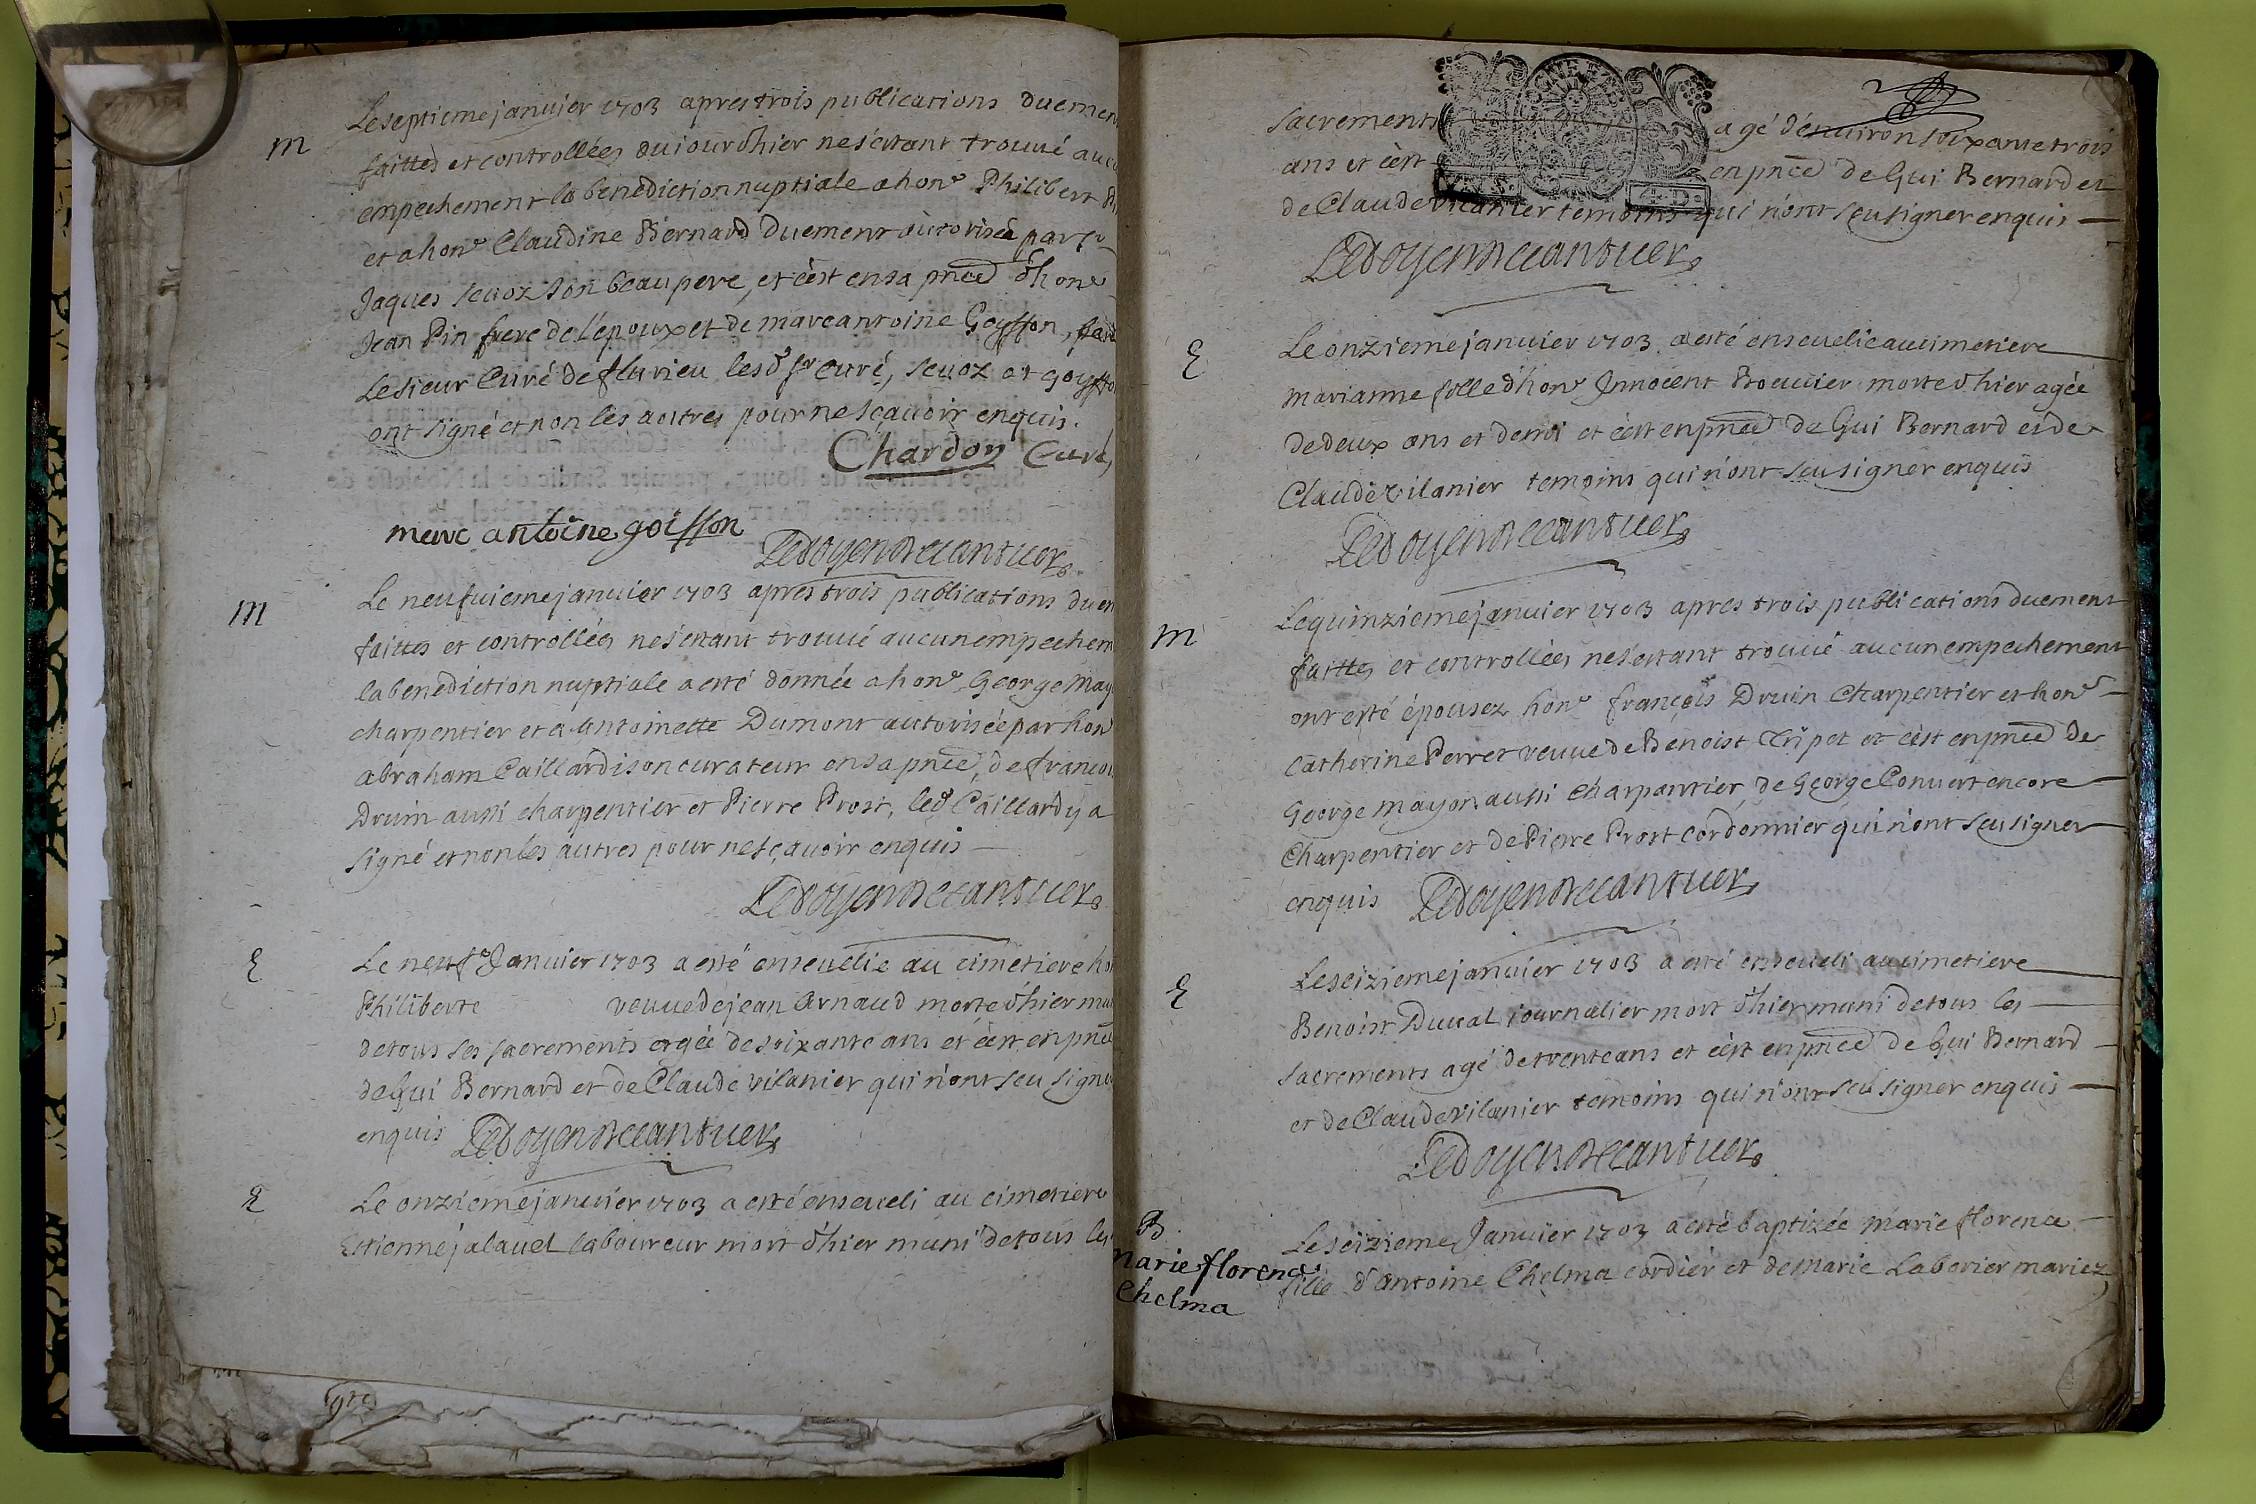 M
Le septieme januier 1703 apres trois publications duemen
faittes et controllées du iour d'hier ne s'estant trouué aucu
empechement la benediction nuptiale a hon^e Philibert
et a hon^e Claudine Bernard duement autorisée par
Jaques seuoz son beau pere, et c'est en sa pñce d'hon^e
Jean Pin frere de l'epoux et de marc antoine Goysson,
Le sieur Curé de flurieu les d^s s^r curé, seuoz et goysso
ont signé et non les aultres pour ne sçauoir enquis.
Chardon Curé
marc antoine goisson
Ledoyen
M
Le neufuieme januier 1703 apres trois publications duem
faittes et controllées ne s'estant trouué aucun empechem
la benediction nuptiale a esté donnée a hon^e George May
charpentier et a antoinette Dumont autorisée par hon
abraham Caillardi son curateur en sa pñce, de francoi
Druin aussi charpentier et Pierre Prost, led Caillardy a
signé et non les autres pour ne sçauoir enquis
Ledoyen
E
Le neuf^e Januier 1703 a esté enseuelie au cimetiere ho
Philiberte veuue de jean Arnaud morte d'hier mu
de tous ses sacrements agée de soixante ans et c'est en pñce
de Gui Bernard et de Claude vilanier qui n'ont seu signe
enquis Ledoyen
E
Le onzieme januier 1703 a esté enseueli au cimetiere
Estienne jalauel laboureur mort d'hier muni de tous les
sacrements agé d'enuiron soixante trois
ans et c'est en pñce de Gui Bernard et
de Claude vilanier temoins qui n'ont seu signer enquis
Ledoyen
E
Le onzieme januier 1703 a esté enseuelie au cimetiere
marianne fille d'hon^e Innocent Bouuier morte d'hier agée
de deux ans et demi et c'est en pñce de Gui Bernard et de
Claude vilanier temoins qui n'ont seu signer enquis
Ledoyen
M
Le quinzieme januier 1703 apres trois publications duement
faittes et controllées ne s'estant trouué aucun empechement
ont esté épousez hon^e françois Druin Charpentier et hon^e
Catherine Perret veuue de Benoist et c'est en pñce de
George mayon aussi Charpantier, de George Conuert encore
Charpentier et de Pierre Prost cordonnier qui n'ont seu signer
enquis Ledoyen
E
Le seizieme januier 1703 a esté enseueli au cimetiere
Benoist Duual iournalier mort d'hier muni de tous les
sacrements agé de trente ans et c'est en pñce de Gui Bernard
et de Claude vilanier temoins qui n'ont seu signer enquis
Ledoyen
B
marie florence
Chelma
Le seizieme Januier 1703 a esté baptizée marie florence
fille d'antoine Chelma cordier et de marie Laborier mariez